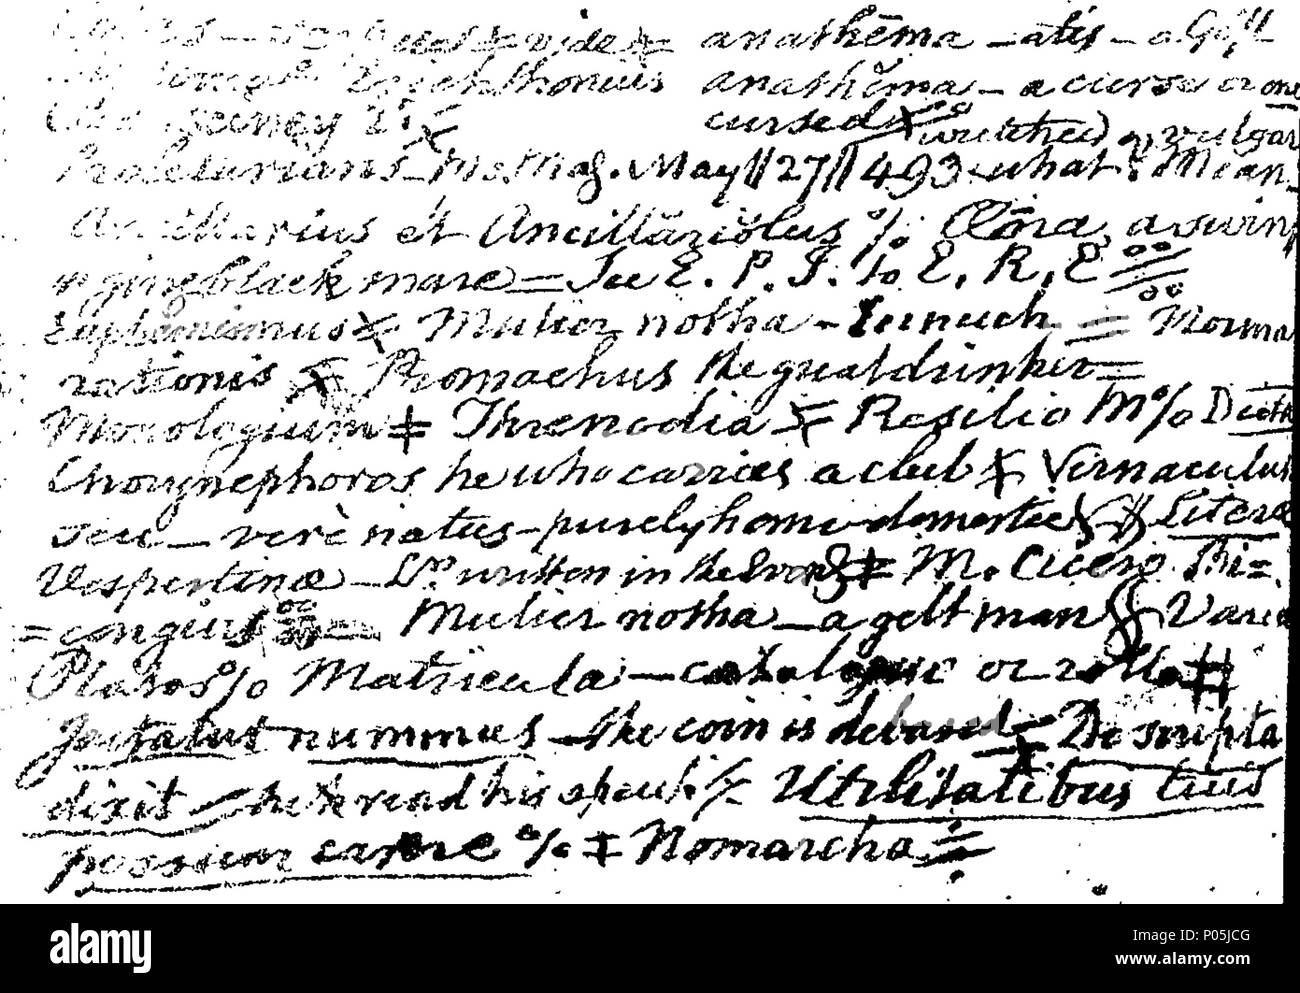 vide anathēma - atis - a Gift
Erichthonius anathĕma - a curse or one
cursed wretched or vulgar
Proletarians - Mo. Mag. May || 27 || 493 what? Mean-
Ancillarius et Ancillariolus % Clōra, a swin
ging black mare = See E. P. I. to E. R. E
Euphemismus Mulier notha - Eunuch = Norma
rationis Promachus the great drinker =
Monologium ‡ Threnodia Resilio M %
Chorynephoros he who carries a club Vernaculus
seu - verè natus - purely home domestic Literæ
Vespertinæ - Lrs written in the Evong ‡ M. Cicero Thi=
= Mulier notha - a gelt man Varia
Platos % Matricula - catalogue or rolls
Jactatur nummus - the coin is debased = De scripta
dixit - he read his speech Utilitatibus tuis
possum carere % ‡ Nomarcha
alamy
Image ID: P05JCG
www.alamy.com